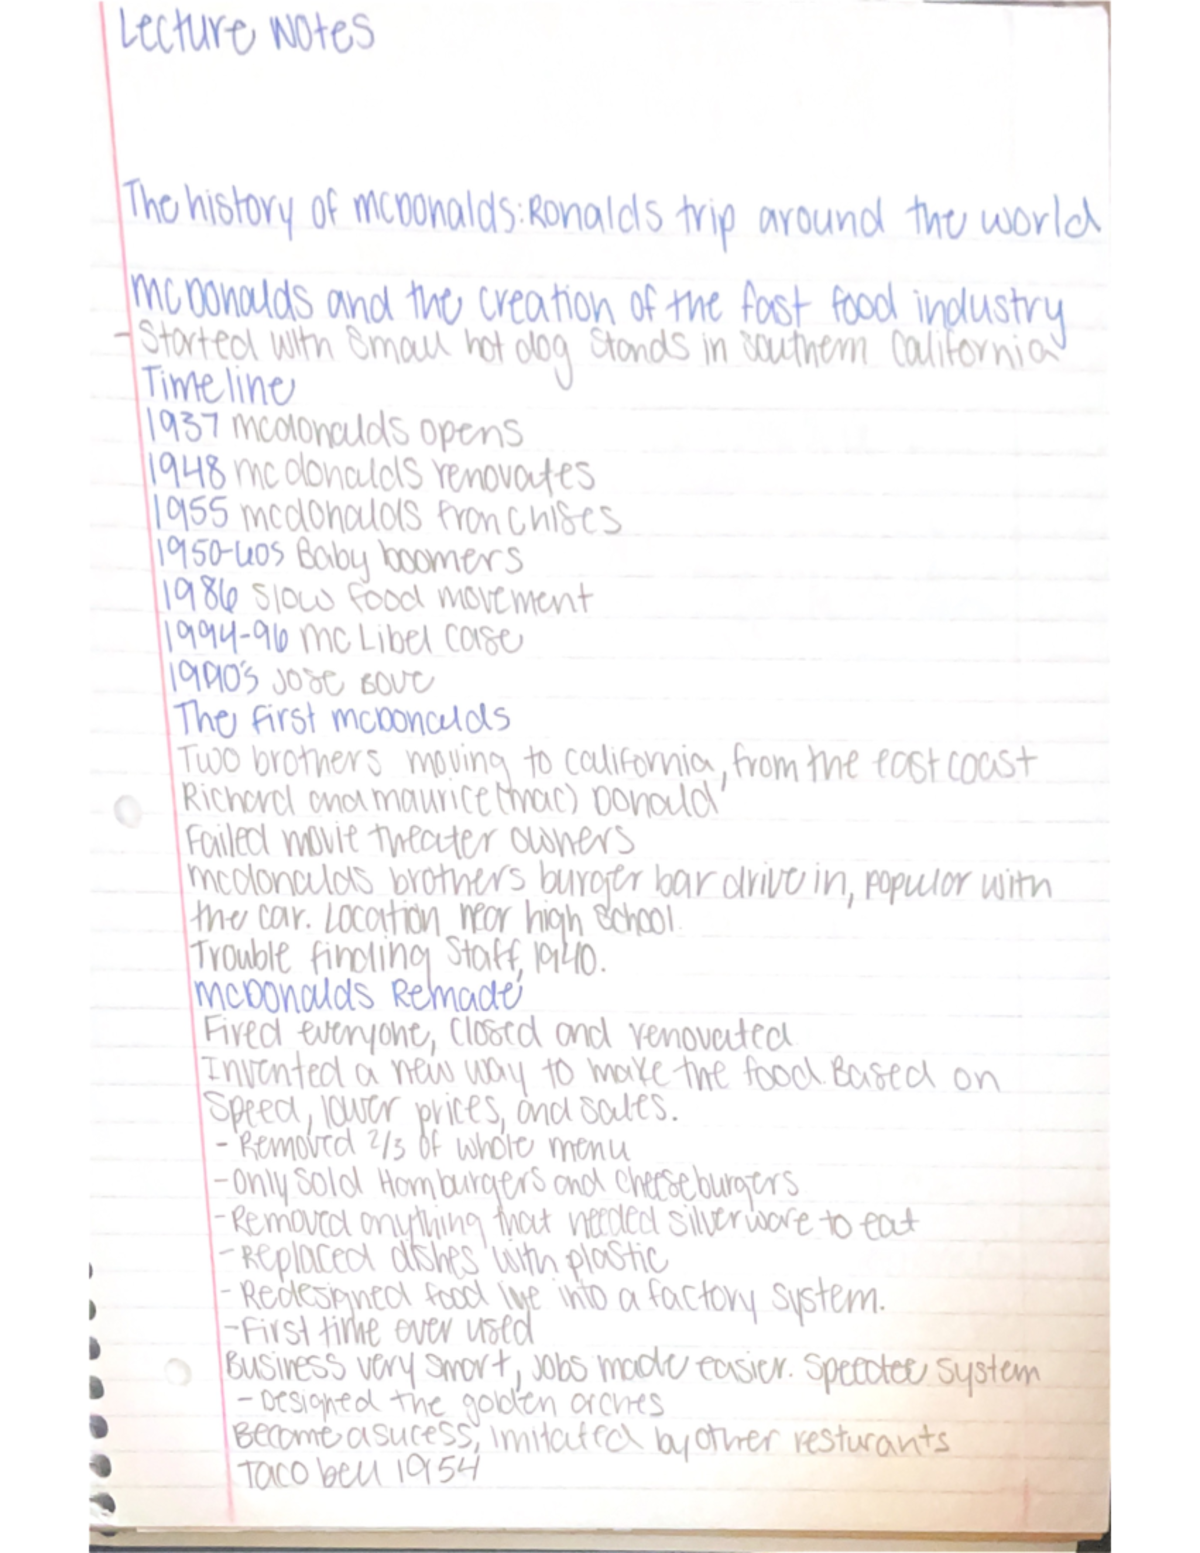 Lecture Notes
The history of mcDonalds: Ronalds trip around the world
mcDonalds and the creation of the fast food industry
- Started with Small hot dog Stands in southern California
Timeline
1937 mcdonalds opens
1948 mcdonalds renovates
1955 mcdonalds franchises
1950-60s Baby boomers
1986 slow food movement
1994-96 mc Libel case
1990's Jose Bove
The first mcDonalds
Two brothers moving to california, from the east coast
Richard and maurice (mac) Donald
Failed movie theater owners
mcdonalds brothers burger bar drive in, popular with
the car. Location near high school.
Trouble finding Staff, 1940.
mcDonalds Remade
Fired everyone, closed and renovated
Invented a new way to make the food. Based on
Speed, lower prices, and sales.
- Removed 2/3 of whole menu
- Only Sold Hamburgers and cheeseburgers
- Removed anything that needed silverware to eat
- Replaced dishes with plastic
- Redesigned food into a factory system.
- First time ever used
Business very smart, jobs made easier. Speedee system
- Designed the golden arches
Become a sucess, imitated by other resturants
Taco bell 1954